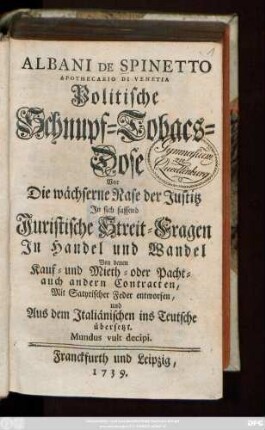 ALBANI DE SPINETTO
APOTHECARIO DI VENETIA
Politische
Schnupf-Tobacs-
Dose
Vor
Die wächserne Nase der Justitz
In sich fassend
Juristische Streit-Fragen
In Handel und Wandel
Von denen
Kauf- und Mieth- oder Pacht-
auch andern Contracten,
Mit Satyrischer Feder entworfen,
und
Aus dem Italiänischen ins Teutsche
übersetzt.
Mundus vult decipi.
Franckfurth und Leipzig,
1739.
Gymnasium
zu
Quedlinburg